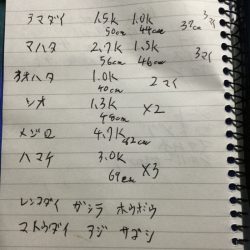 マダイ 1.5K 1.0K 37cm 3マイ
50cm 44cm
マハタ 2.7K 1.3K 3マイ
56cm 46cm
オオハタ 1.0K 2マイ
40cm
シオ 1.3K ×2
48cm
メジロ 4.7K
62cm
ハマチ 3.0K ×3
69cm
レンコダイ ガシラ ホウボウ
マトウダイ アジ サゴシ